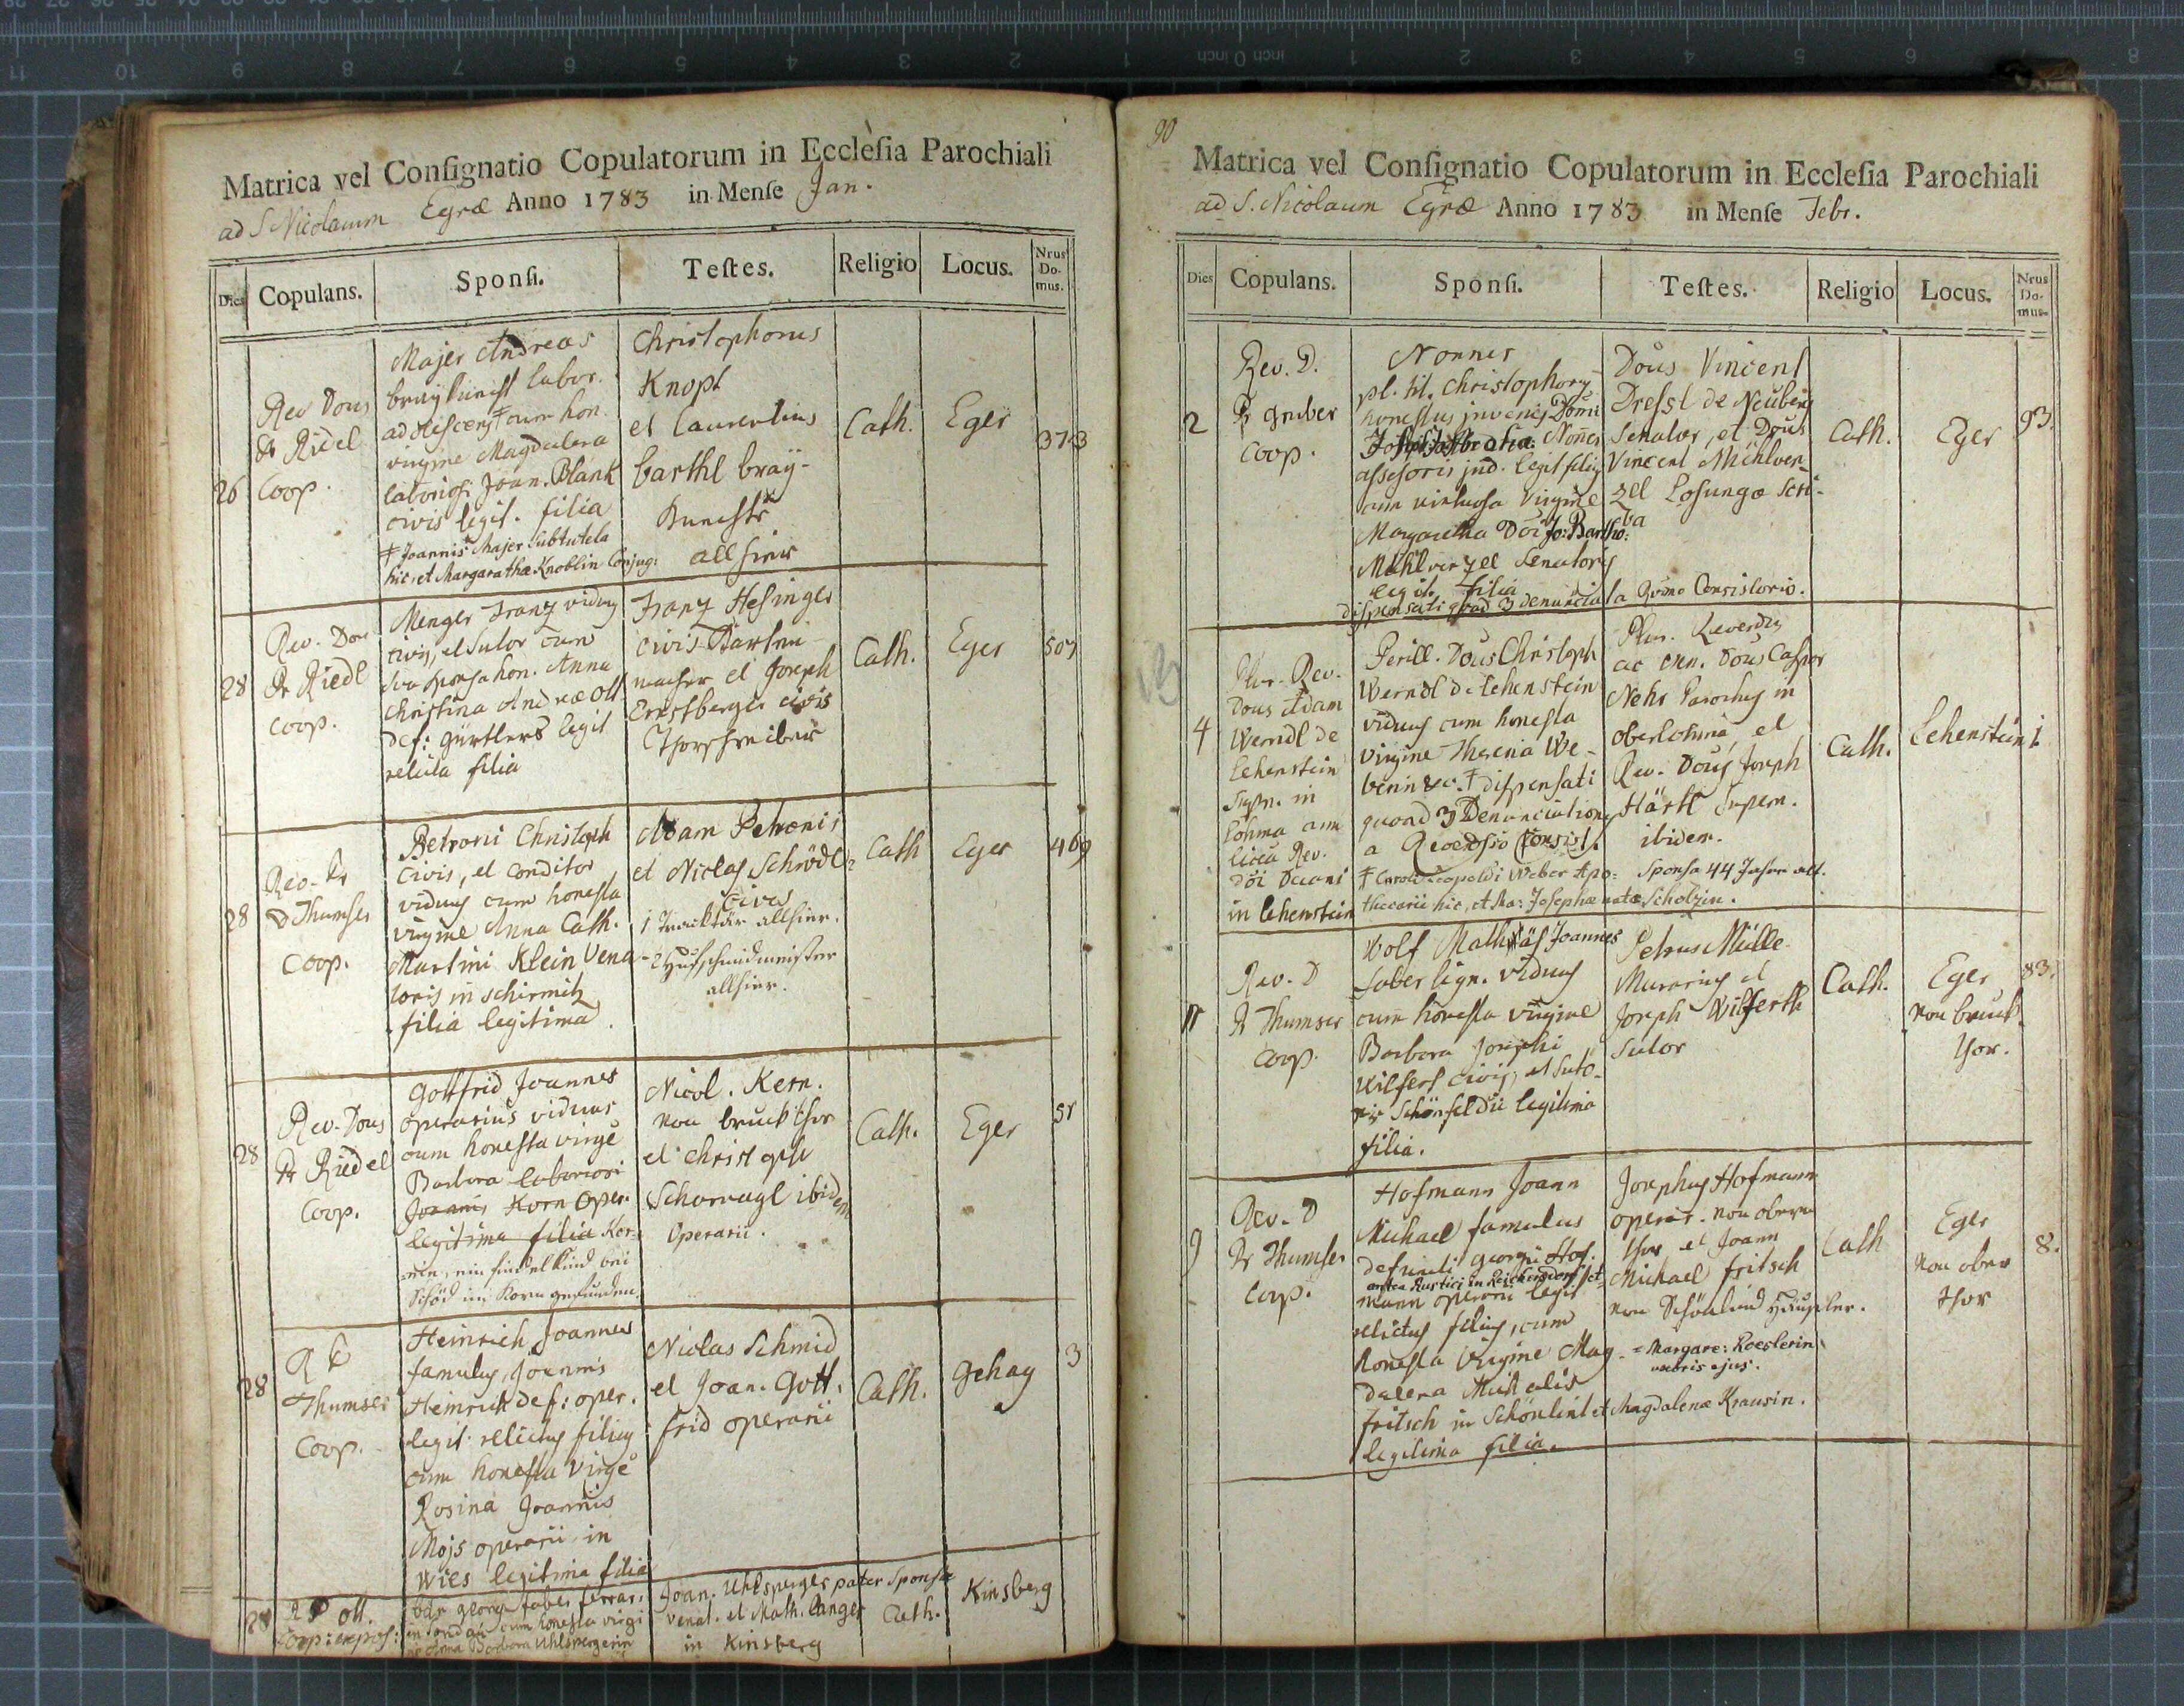 Matrica vel Conſignatio Copulatorum in Eccleſia Parochiali
ad S Nicolaum Egræ Anno 1783 in Menſe Jan.
Dies
Copulans.
Sponſi.
Teſtes.
Religio
Locus.
Nrus
Do-
mus.
26
Rev Dous
Pr Riedel
Coop.
Majer Andreas
bräyknecht labor.
adolescens ‡ cum hon.
virgine Magdalena
laboriosi Joan. Blank
civis legit. filia
‡ Joannis Majer subtutela
hic, et Margarathæ Knoblin Conjug:
Christophorus
Knopf
et Laurentius
barthl bräy-
knechte
allhier
Cath.
Eger
373
28
Rev. Dous
Pr Riedl
Coop.
Menger Franz viduus
civis, et sutor cum
sua sponsa hon. Anna
Christina Andreæ Ott
def: gürtlers legit
relicta filia
Franz Hesinger
civis
macher et Joseph
Ernstberger civis
Thorschreiber
Cath.
Eger
507
28
Rev. Pr
D Thumser
Coop.
Betroni Christoph
civis, et conditor
viduus cum honesta
virgine Anna Cath.
Martini Klein Vena-
toris in Schirmitz
filia legitima.
Adam Petronis
et Niclas Schrödl
cives
1 Tracktär allhier.
2 Hufschmidmeister
allhier.
Cath
Eger
469
28
Rev. Dous
Pr Riedel
Coop.
Gottfrid Joannes
operarius viduus
cum honesta virge
Barbara laboriosi
Joannis Korn oper.
legitima filia Kor-
nin, ein findelkind bei
Schöd im Korn gefunden.
Nicol. Kern.
von bruckthor
et Christoph
Schornagl ibidem
Operarii.
Cath.
Eger
51
28
R P
Thumser
Coop.
Heinrich Joannes
famulus, Joannis
Heinrich def: oper.
legit. relictus filius
cum honesta virge
Rosina Joannis
Mojs operarii in
Wies legitima filia
Niclas Schmid
et Joan. Gott-
frid operarii
Cath.
Gehag
3
28
R P Ott.
Coop: expos:
bär georg faber ferrar:
in cum honesta virgi
ne Anna Barbara Uhlspergerin
Joan. Uhlsperger pater Sponsæ
venat. et Math. langer
in Kinsberg
Cath.
Kinsberg
90
Matrica vel Conſignatio Copulatorum in Eccleſia Parochiali
ad S. Nicolaum Egræ Anno 1783 in Menſe Febr.
Dies
Copulans.
Sponſi.
Teſtes.
Religio
Locus.
Nrus
Do-
mus.
2
Rev. D.
Pr gruber
Coop.
Nonner
pl. tit. Christophorus
honestus juvenis Domi
Nonner
assessoris jud. legit filius
cum virtuosa virgine
Margaretha Doi Jo: Bartho:
Mühlverzel Senatoris
legit. filia
dispensati quoad 3 denunciat a Rvdmo Consistorio.
Dous Vincent
Dressl de Neuberg
Senator, et Dous
Vincent Mühlver-
zel Losungæ Scri-
ba
Cath.
Eger
93.
4
Plur. Rev.
Dous Adam
Werndl de
Lehenstein
Supn. in
Lohma cum
licea Rev.
doi Decani
in Lehenstein
Perill. Dous Christoph
Werndl de Lehenstein
viduus cum honesta
virgine Theresia We-
berin &c. ‡ dispensati
quoad 3 Denunciationes
a Consist.
‡ Caroli Leopoldi Weber Apo-
thecarii hic, et Ma: Josephæ natæ Scholzin.
Plur. Reverdus
ac exn. Dous Caspar
Nehr Parochus in
oberlohma, et
Rev. Dous Joseph
Härtl Supern.
ibidem.
Sponsa 44 Jahr alt.
Cath.
Lehenstein
1.
11
Rev. D
Pr Thumser
Coop.
Wolf Mathias Joannes
faber lign. viduus
cum honesta virgine
Barbara Josephi
Wilfert civis, et suto-
ris Schönfeldii legitima
filia.
Petrus Mülle
Murarius et
Joseph Wilferth
Sutor
Cath.
Eger
von bruck
thor.
83.
9
Rev. D
Pr Thumser
Coop.
Hofmann Joann
Michael famulus
defuncti georgii Hof-
antea Rustici in Reichersdorf et
mann operarii legit
relictus filius, cum
honesta virgine Mag-
dalena Michaelis
fritsch in Schönlint et Magdalenæ Krausin.
legitima filia.
Josephus Hofmann
operar. von obern
thor et Joann
Michael fritsch
von Schönlind Häusler.
= Margare: Roeslerin
uxoris ejus.
Cath
Eger
von ober
thor
8.